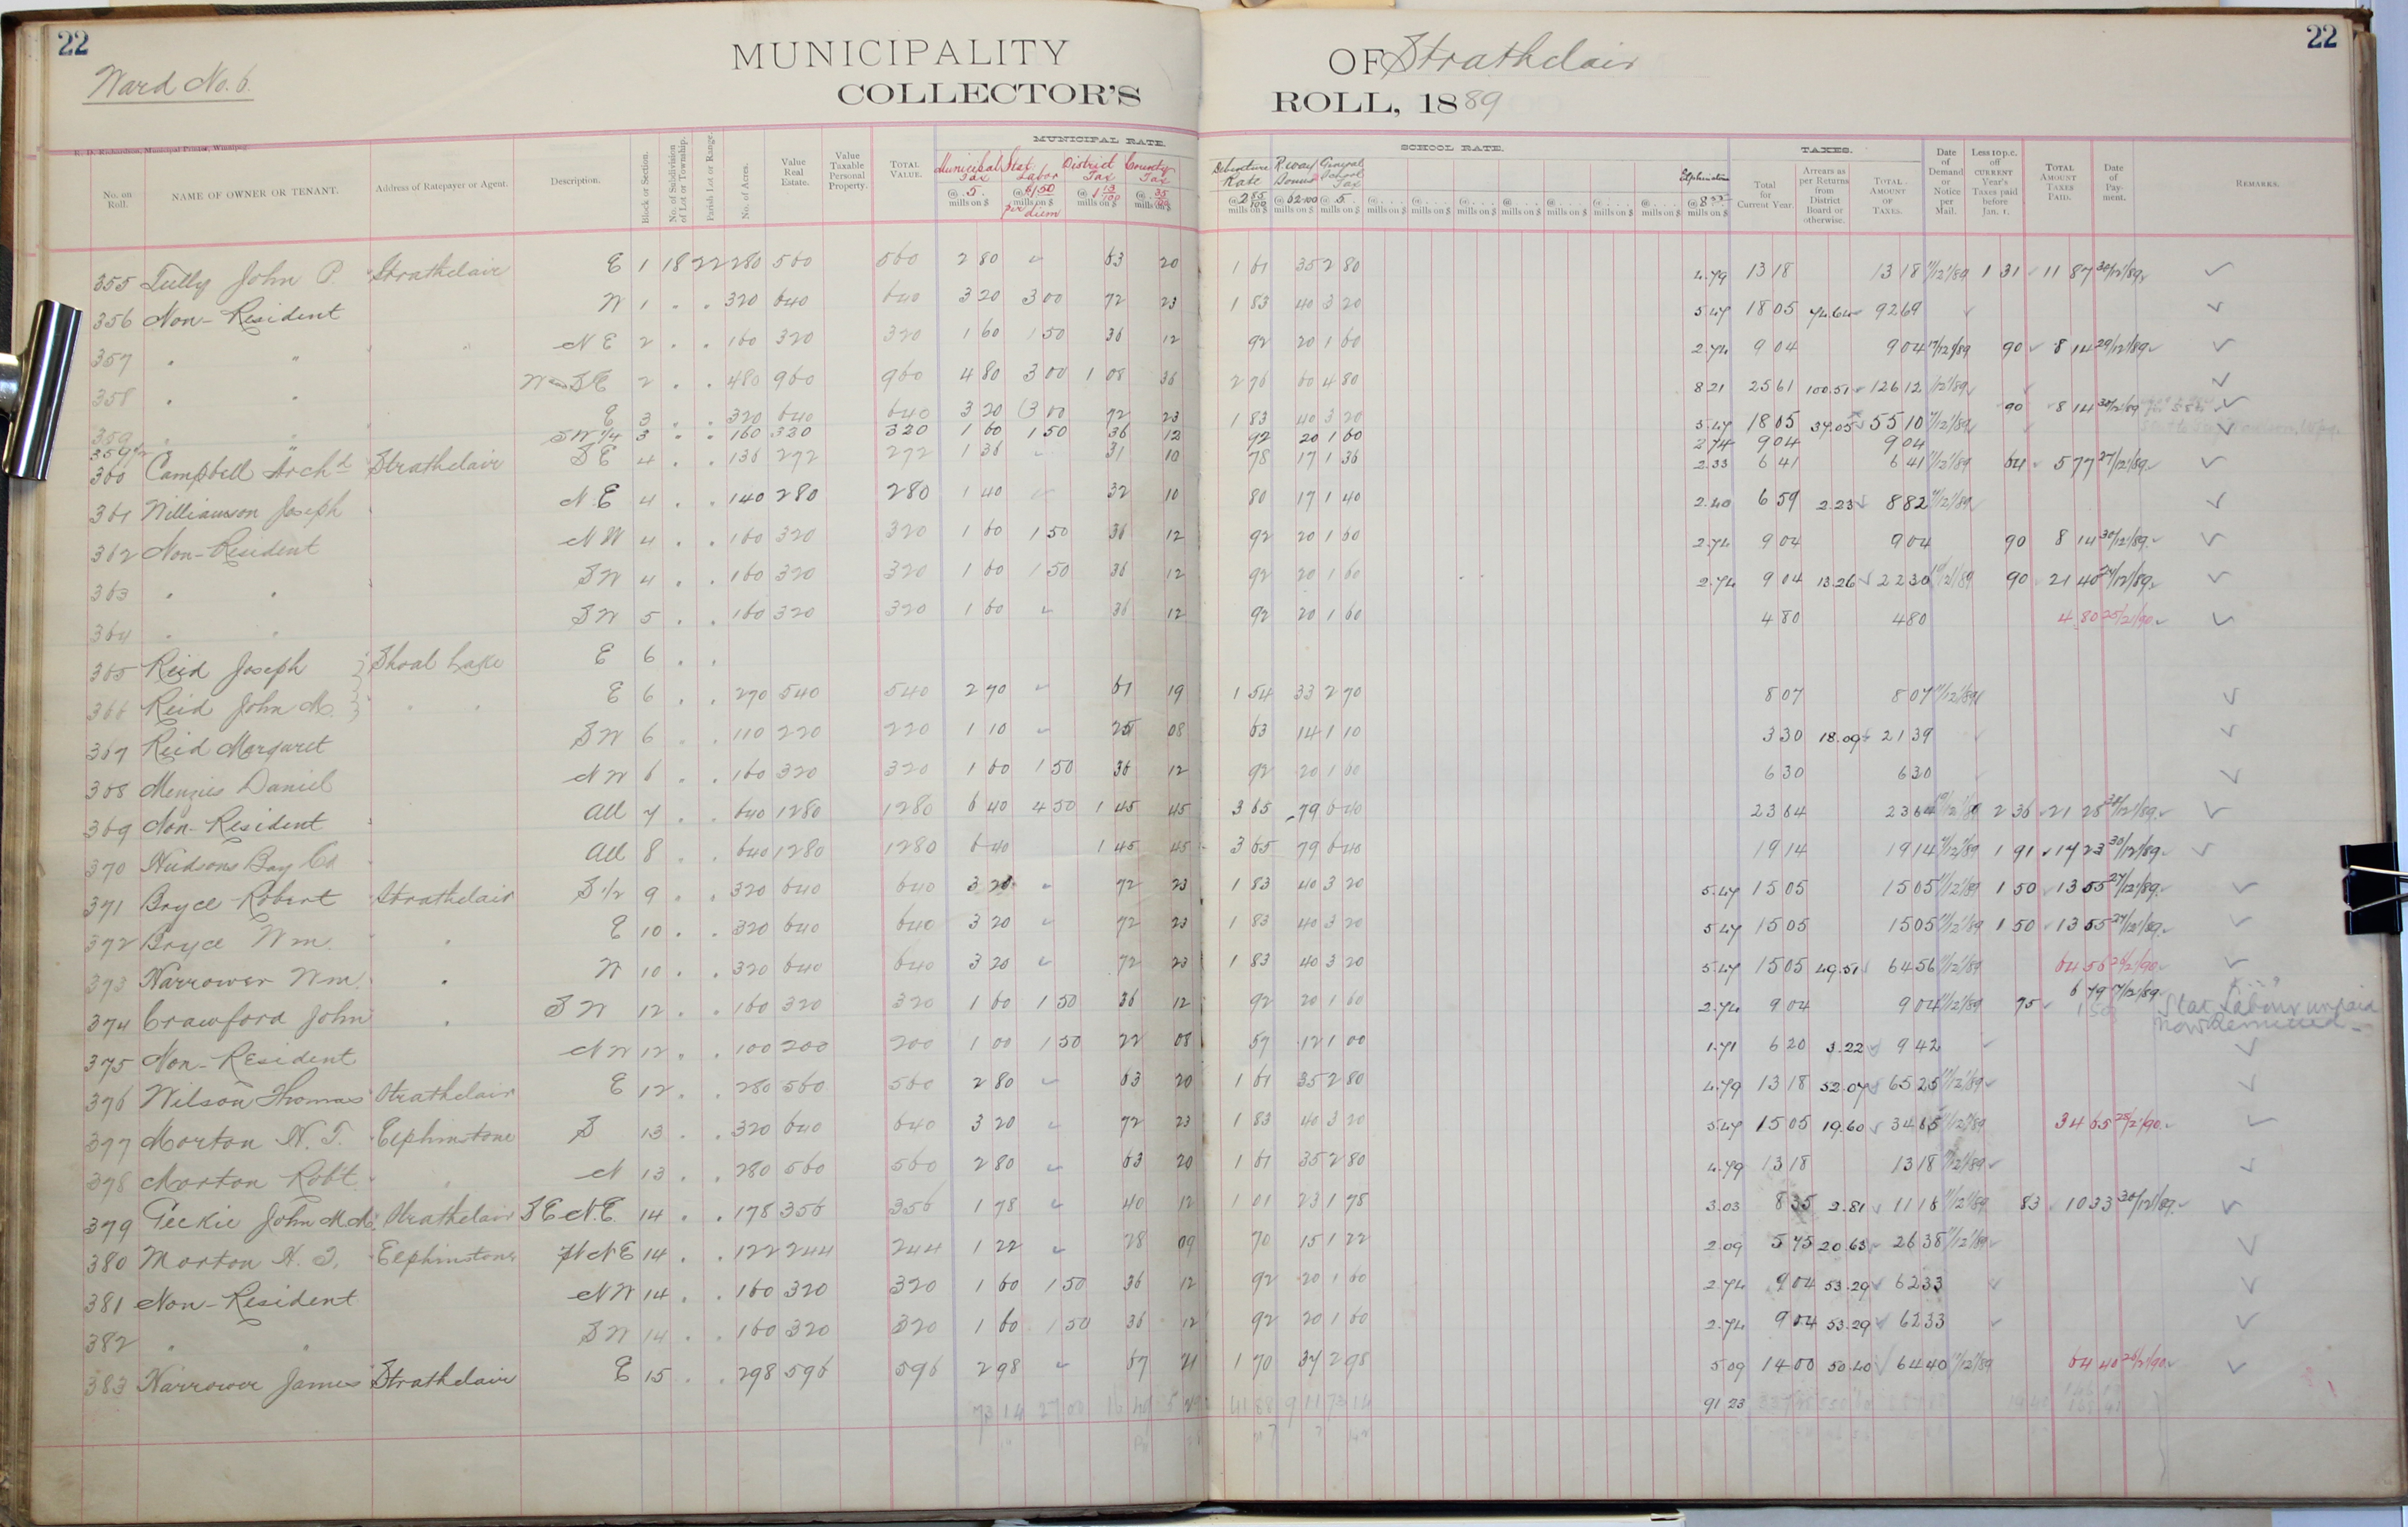 22
22
Ward No. 6.
MUNICIPALITY OF Strathclair
COLLECTOR'S ROLL, 1889
R. D. Richardson, Municipal Printer, Winnipeg.
MUNICIPAL RATE. SCHOOL RATE. TAXES.
No. on Roll. NAME OF OWNER OR TENANT. Address of Ratepayer or Agent. Description. Block or Section. No. of Subdivision of Lot or Township. Parish Lot or Range. No. of Acres. Value Real Estate. Value Taxable Personal Property. TOTAL VALUE. Municipal Tax @ .5. mills on $ Stat Labor @ $1.50 mills on $ per diem District Tax @ 1 13/100 mills on $ County Tax @ 35/100 mills on $ Debenture Rate @ 2 85/100 mills on $ R.way Bonus @ 62/100 mills on $ General School Tax @ 5. mills on $ Elphinstone @ 8 55 mills on $ Total for Current Year. Arrears as per Returns from District Board or otherwise. TOTAL AMOUNT OF TAXES. Date of Demand or Notice per Mail. Less 10 p.c. off CURRENT Year's Taxes paid before Jan. 1. TOTAL AMOUNT TAXES PAID. Date of Payment. REMARKS.
355 Tully John P. Strathclair E 1 18 22 280 560 560 2 80 " 63 20 1 61 35 2 80 4.79 13 18 13 18 11/12/89 1 31 11 87 30/12/89
356 Non-Resident W 1 . . 320 640 640 3 20 3 00 72 23 1 83 40 3 20 5.47 18 05 74.64 92 69
357 " " N E 2 . . 160 320 320 1 60 1 50 36 12 92 20 1 60 2.74 9 04 9 04 11/12/89 90 8 14 29/12/89
358 " " W and S E 2 . . 480 960 960 4 80 3 00 1 08 36 2 76 60 4 80 8 21 25 61 100.51 126 12 /12/89
359 " " E 3 . . 320 640 640 3 20 3 00 72 23 1 83 40 3 20 5.47 18 05 37.05 55 10 11/12/89 90 8 14 30/12/89
359 1/2 " SW 1/4 3 . . 160 320 320 1 60 1 50 36 12 92 20 1 60 2 74 9 04 9 04
360 Campbell Archd Strathclair S E 4 . . 136 272 272 1 36 " 31 10 78 17 1 36 2.33 6 41 6 41 11/12/89 64 5 77 27/12/89
361 Williamson Joseph N.E 4 . . 140 280 280 1 40 " 32 10 80 17 1 40 2.40 6 59 2.23 8 82 11/12/89
362 Non-Resident N W 4 . . 160 320 320 1 60 1 50 36 12 92 20 1 60 2.74 9 04 9 04 90 8 14 30/12/89
363 " " S W 4 . . 160 320 320 1 60 1 50 36 12 92 20 1 60 2.74 9 04 13.26 22 30 11/12/89 90 21 40 27/12/89
364 " " S W 5 . . 160 320 320 1 60 " 36 12 92 20 1 60 4 80 4 80 4 80 25/2/90
365 Reid Joseph } Shoal Lake E 6 . .
366 Reid John M. } " " E 6 . . 270 540 540 2 70 " 61 19 1 54 33 2 70 8 07 8 07 11/12/89
367 Reid Margaret S W 6 . . 110 220 220 1 10 " 25 08 63 14 1 10 3 30 18.09 21 39
368 Menzies Daniel N W 6 . . 160 320 320 1 60 1 50 36 12 92 20 1 60 6 30 6 30
369 Non-Resident All 7 . . 640 1280 1280 6 40 4 50 1 45 45 3 65 79 6 40 23 64 23 64 11/12/89 2 36 21 28 30/12/89
370 Hudsons Bay Co All 8 . . 640 1280 1280 6 40 1 45 45 3 65 79 6 40 19 14 19 14 11/12/89 1 91 17 23 30/12/89
371 Bryce Robert Strathclair S 1/2 9 . . 320 640 640 3 20 " 72 23 1 83 40 3 20 5.47 15 05 15 05 11/12/89 1 50 13 55 27/12/89
372 Bryce Wm. " E 10 . . 320 640 640 3 20 " 72 23 1 83 40 3 20 5.47 15 05 15 05 11/12/89 1 50 13 55 27/12/89
373 Narrower Wm. " W 10 . . 320 640 640 3 20 " 72 23 1 83 40 3 20 5.47 15 05 49.51 64 56 11/12/89 64 56 26/2/90
374 Crawford John " S W 12 . . 160 320 320 1 60 1 50 36 12 92 20 1 60 2.74 9 04 9 04 11/12/89 75 6 79 17/12/89 1 50 Stat. Labour unpaid now Remitted
375 Non-Resident N W 12 . . 100 200 200 1 00 1 50 22 08 57 12 1 00 1.71 6 20 3.22 9 42
376 Wilson Thomas Strathclair E 12 . . 280 560 560 2 80 " 63 20 1 61 35 2 80 4.79 13 18 52.07 65 25 11/12/89
377 Morton H. T. Elphinstone S 13 . . 320 640 640 3 20 " 72 23 1 83 40 3 20 5.47 15 05 19.60 34 65 11/12/89 34 65 25/2/90
378 Morton Robt. " N 13 . . 280 560 560 2 80 " 63 20 1 61 35 2 80 4.79 13 18 13 18 11/12/89
379 Geekie John McM. Strathclair S E N.E. 14 . . 178 356 356 1 78 " 40 12 1 01 23 1 78 3.03 8 35 2.81 11 16 11/12/89 83 10 33 30/12/89
380 Morton H. T. Elphinstone pt N E 14 . . 122 244 244 1 22 " 28 09 70 15 1 22 2.09 5 75 20.63 26 38 11/12/89
381 Non-Resident N W 14 . . 160 320 320 1 60 1 50 36 12 92 20 1 60 2.74 9 04 53.29 62 33
382 " " S W 14 . . 160 320 320 1 60 1 50 36 12 92 20 1 60 2.74 9 04 53.29 62 33
383 Narrower James Strathclair E 15 . . 298 596 596 2 98 " 67 21 1 70 37 2 98 5 09 14 00 50.40 64 40 11/12/89 64 40 26/2/90
73 14 27 00 41 88 9 11 73 14 91 23